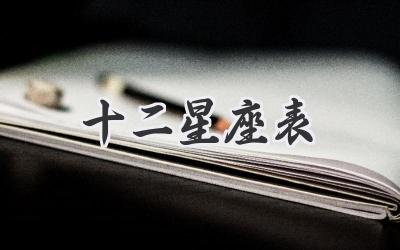 十二星座表